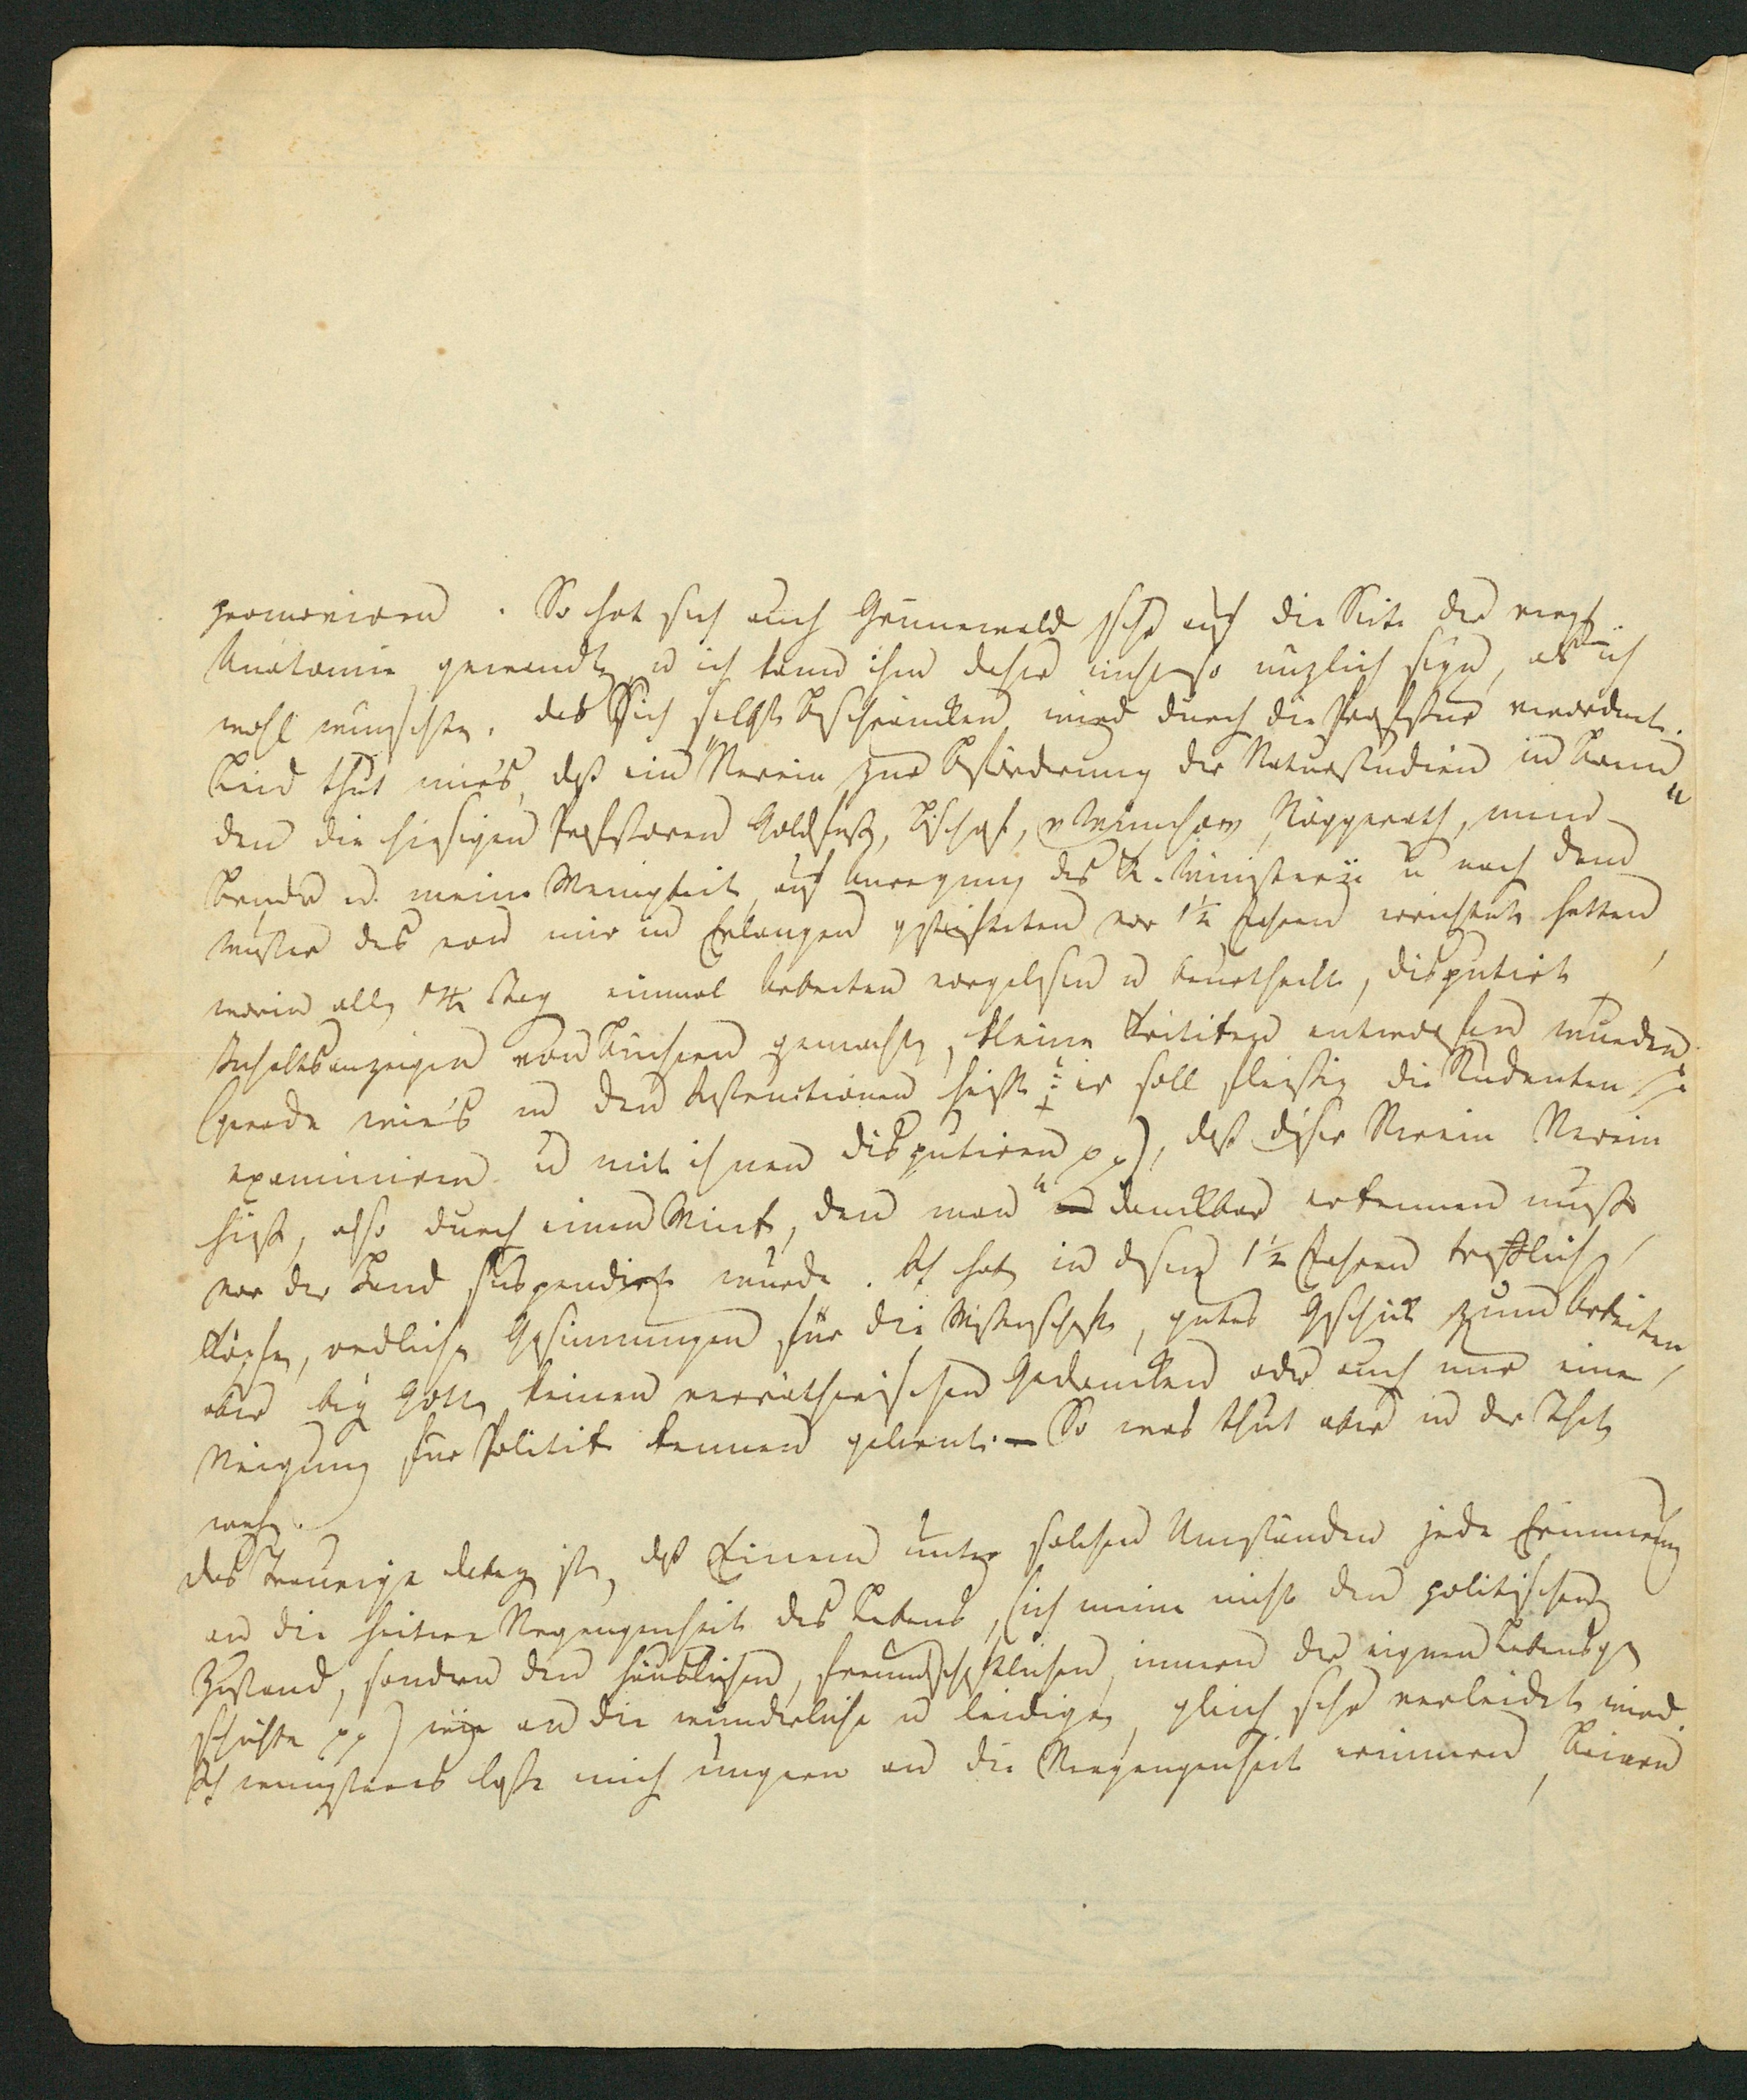 promoviren. So hat sich auch Grunewald sehr auf die Seite der vergl.
Anatomie gewendet u ich kann ihm daher nicht so nüzlich seyn, als ich
wohl wünschte. Das Sich selbst Beschräncken wird durch die Professur
Leid thut mirs, daß ein "Verein zur Beförderung der Naturstudien in Bonn"
den die hiesigen Professoren Goldfuß, Bischof, v Münchow, Nöggerath, mein
Bruder u. meine Wenigkeit auf Anregung des K. Ministerii u nach dem
Muster des von mir in Erlangen gestifteten vor 1½ Jahren errichtet hatten
worin alle 14 Tag einmal Arbeiten vorgelesen u beurtheilt, disputirt,
Inhaltsanzeigen von Büchern gemacht, kleine Kritiken entworfen wurden
(gerade wie's in den Instructionen heißt: er soll fleißig die Studenten
examiniren u mit ihnen disputiren pp), daß dieser Verein Verein
hieß, also durch einen Wink, den man danckbar erkennen muß
vor der Hand suspendirt wurde. Ich habe in diesen 1½ Jahren treffliche
Köpfe, redliche Gesinnungen für die Wissenschaft, gutes Geschick zum Arbeiten,
aber bey Gott keinen verrätherischen Gedancken oder auch nur eine
Neigung für Politik kennen gelernt. – So was thut aber in der That
wehe.
Das Traurige dabey ist, daß Einem unter solchen Umständen jede Erinnerung
an die heitere Vergangenheit des Lebens, (ich meine nicht den politischen
Zustand, sondern den häuslichen, freundschaftlichen, innern der eignen Lebensge
schichte pp) wie an die wunderliche u leidige, gleich sehr verleidet wird.
Ich wenigstens lasse mich ungern an die Vergangenheit erinnern,